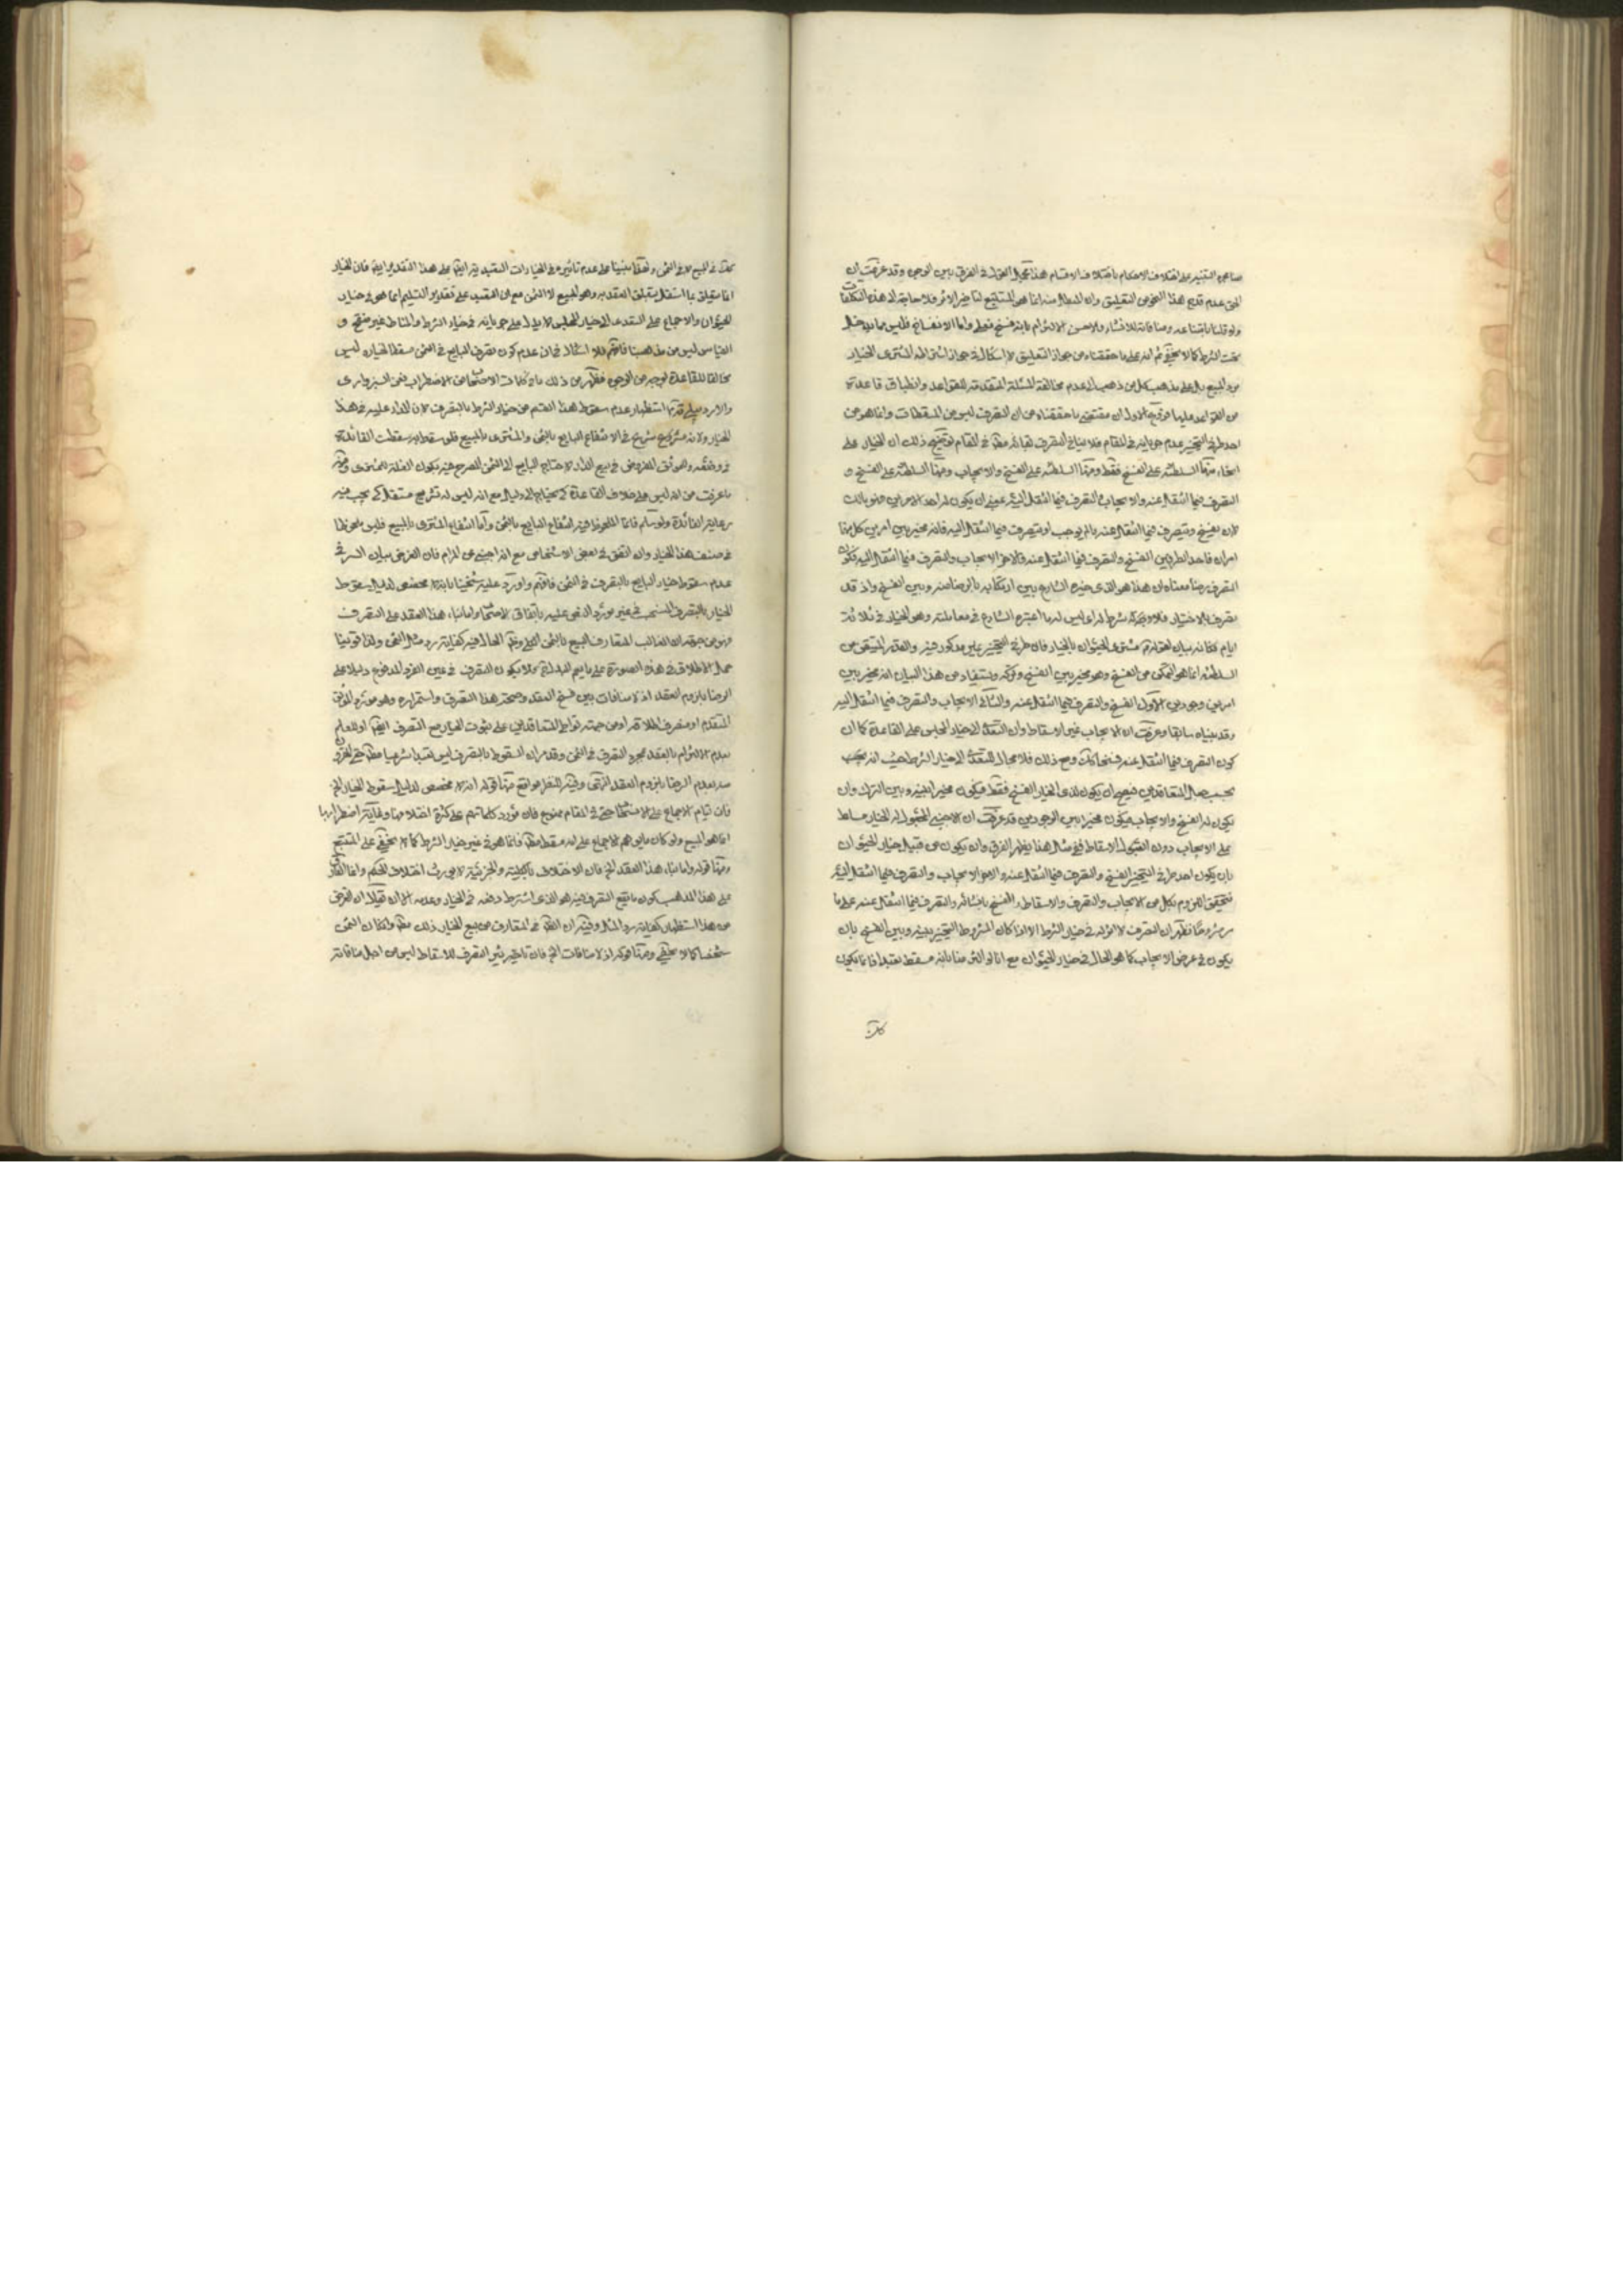 صاحبي التنبيه على اختلاف الاحكام باختلاف الاقسام هذا مجمل القول في الفرق بين الوجهين وقد عرفت ان
الحق عدم قدح هذا النحو من التعليق وان المبطل منه انما هو المستتبع لتأخير الاثر فلا حاجة الى هذه التكلفات
ولو قلنا بامتناعه ومنافاته للانشاء فلا معنى لالتزام بانه فسخ فعلي واما الانفساخ فليس مما يدخل
تحت الشرط كما لا يخفى ثم انه على ما حققناه من جواز التعليق لا اشكال في جواز اشتراط المشتري الخيار
برد المبيع بل على مذهب كل من ذهب الى عدم مخالفة المسئلة المتقدمة للقواعد وانطباق قاعدة
من القواعد عليها الاول ان مقتضى ما حققناه من ان التصرف ليس من المسقطات وانما هو من
احد طرفي التخيير عدم جريانه في المقام فلا ينافي التصرف لبقائه مطلقا في المقام توضيح ذلك ان الخيار على
انحاء منها السلطنة على الفسخ فقط ومنها السلطنة على الفسخ والايجاب ومنها السلطنة على الفسخ و
التصرف فيما انتقل عنه والايجاب والتصرف فيما انتقل اليه بمعنى ان يكون له احد الامرين فهو مالك
لان يفسخ ويتصرف فيما انتقل عنه بان يوجب او يتصرف فيما انتقل اليه فانه مخير بين امرين كل منهما
امران فاحد الطرفين الفسخ والتصرف فيما انتقل عنه والاخر الايجاب والتصرف فيما انتقل اليه فكون
التصرف رضا معناه ان هذا هو الذي خيره الشارع بين ارتكابه بالرضا منه وبين الفسخ واذ قد
تصرف بالاختيار فلا وشركه شرط له اي ليس له ما اعتبره الشارع في معاملته وهو الخيار في ثلاثة
ايام فكانه بيان لعدم مشتري الحيوان بالخيار فان طرفي التخيير غير مذكور فيه والقدر المتيقن من
السلطنة انما هو التمكن من الفسخ وهو مخير بين الفسخ وتركه ويستفاد من هذا البيان انه مخير بين
امرين وجوديين الاول الفسخ والتصرف فيما انتقل عنه والثاني الايجاب والتصرف فيما انتقل اليه
وقد بيناه سابقا وعرفت ان الايجاب غير الاسقاط وان التعدي الى خيار المجلس على القاعدة كما ان
كون التصرف فيما انتقل عنه فسخا كذلك ومع ذلك فلا مجال للتعدي الى خيار الشرط حيث انه يجب
بحسب جعل المتعاقدين فيصح ان يكون لذي الخيار الفسخ فقط فيكون مخيرا بينه وبين الترك وان
يكون له الفسخ والايجاب فيكون مخيرا بين الوجوديين قد عرفت ان الاجنبي المجعول له الخيار مسلط
على الايجاب دون القبول الاسقاط ففي مثل هذا يظهر الفرق وان يكون من قبيل خيار الحيوان
بان يكون احد طرفي التخيير الفسخ والتصرف فيما انتقل عنه والاخر الايجاب والتصرف فيما انتقل اليه
فتحقق اللزوم بكل من الايجاب والتصرف والاسقاط والفسخ بانشائه والتصرف فيما انتقل عنه على ما
مر فظهر ان التصرف لا اثر له في خيار الشرط الا اذا كان المشروط التخيير بينه وبين الفسخ بان
يكون في عرض الايجاب كما هو الحال في خيار الحيوان مع انا لو التزمنا بانه مسقط تعبدا فانما يكون
كذلك
كذلك في المبيع لا في الثمن ولهذا بنينا على عدم تأثيره في الخيارات التعبدية ايضا على هذا التقدير ايضا فان الخيار
انما يتعلق بما استقل بتعلق العقد به وهو المبيع لا الثمن مع ان التعبد على تقدير التسليم انما هو في خيار
الحيوان والاجماع على التعدي الى خيار المجلس لا يدل على جريانه في خيار الشرط والمناط غير منقح و
القياس ليس من مذهبنا فافهم فلا اشكال في ان عدم كون تصرف البايع في الثمن مسقطا لخياره ليس
مخالفا للقاعدة بوجه من الوجوه فظهر من ذلك ما في كلمات الاصحاب من الاضطراب فعن السبزواري
والاردبيلي قدهما استظهار عدم سقوط هذا القسم من خيار الشرط بالتصرف لان المدار عليه في هذا
الخيار ولانه شرع في الانتفاع البايع بالثمن والمشتري بالمبيع فلو سقط به سقطت الفائدة
في وضعه والموثق المفروض في بيع الدار لاحتياج البايع الى الثمن المصرح فيه بكون الغلة للمشتري وفيه
ما عرفت من انه ليس على خلاف القاعدة كي يحتاج الى دليل مع انه ليس له تشريع مستقل كي يجب فيه
رعاية الفائدة ولو سلم فانما الملحوظ فيه انتفاع البايع بالثمن واما انتفاع المشتري بالمبيع فليس ملحوظا
في صنف هذا الخيار وان اتفق في بعض الاشخاص مع انه اجنبي عن المرام فان الغرض بيان السر في
عدم سقوط خيار البايع بالتصرف في الثمن فافهم واورد عليه شيخنا بانه لا مخصص لدليل سقوط
الخيار بالتصرف المنسحب في غير مورد النص عليه باتفاق الاصحاب واما بناء هذا العقد على التصرف
فهو من جهة ان الغالب المتعارف البيع بالثمن الكلي وظاهر الحال فيه كفاية رد مثل الثمن ولذا قوينا
حمل الاطلاق في هذه الصورة على ما يعم البدل فلا يكون التصرف في عين الفرد المدفوع دليلا على
الرضا بلزوم العقد اذ لا منافات بين فسخ العقد وصحة هذا التصرف واستمراره وهو مورد الموثق
المتقدم او منصرف اطلاقه او من جهة تواطي المتعاقدين على ثبوت الخيار مع التصرف ايضا او للعلم
بعدم الالتزام بالعقد بمجرد التصرف في الثمن وقد مر ان السقوط بالتصرف ليس تعبدا شرعيا مطلقا حتى المقرون
منه بعدم الرضا بلزوم العقد انتهى وفيه النظر مواقع منها قوله انه لا مخصص لدليل سقوط الخيار الخ
فان قيام الاجماع على الانسحاب حتى في المقام ممنوع فان مورد كلماتهم على كثرة اختلافها وغاية اضطرابها
انما هو المبيع ولو كان ما يوهم الاجماع على انه مسقط مطلقا فانما هو في غير خيار الشرط كما لا يخفى على المتتبع
ومنها قوله واما بناء هذا العقد الخ فان الاختلاف بالكلية والجزئية لا يورث اختلاف الحكم وانما الفارق
على هذا المذهب كون ما يقع التصرف فيه هو الذي اشترط دفعه في الخيار وعدمه الا ان يقال ان الغرض
من هذا استظهار كفاية رد المثل وفيه ان الظاهر في المتعارف من بيع الخيار ذلك مطلقا ولو كان الثمن
شخصا كما لا يخفى ومنها قوله اذ لا منافات الخ فان تأثير التصرف للاسقاط ليس من اجل منافاته